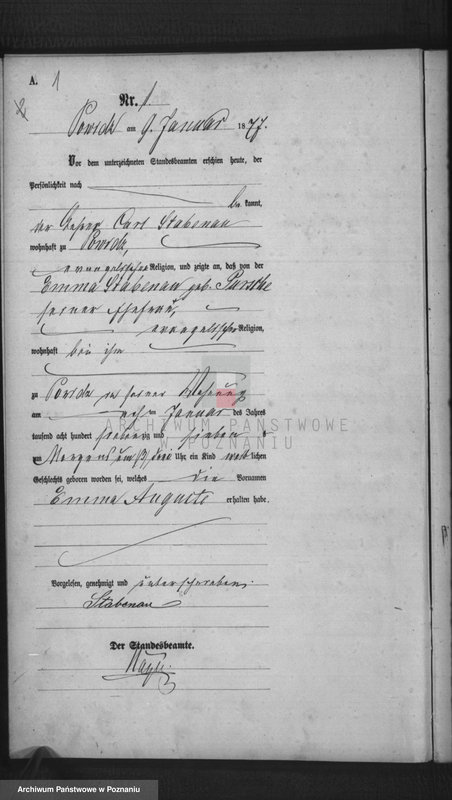 A. 1
Nr. 1
Powidz am 9. Januar 1877.
Vor dem unterzeichneten Standesbeamten erschien heute, der
Persönlichkeit nach
be kannt,
der Carl Stabenau
wohnhaft zu Powidz,
evangelischer Religion, und zeigte an, daß von der
Emma Stabenau geb.
seiner Ehefrau,
evangelischer Religion,
wohnhaft bei ihm
zu Powidz in seiner Wohnung
am Januar des Jahres
tausend acht hundert siebenzig und sieben
zum Morgens um Uhr ein Kind weiblichen
Geschlechts geboren worden sei, welches die Vornamen
Emma Auguste erhalten habe.
Vorgelesen, genehmigt und unterschrieben.
Stabenau
Der Standesbeamte.
ARCHIWUM PAŃSTWOWE
W POZNANIU
Archiwum Państwowe w Poznaniu